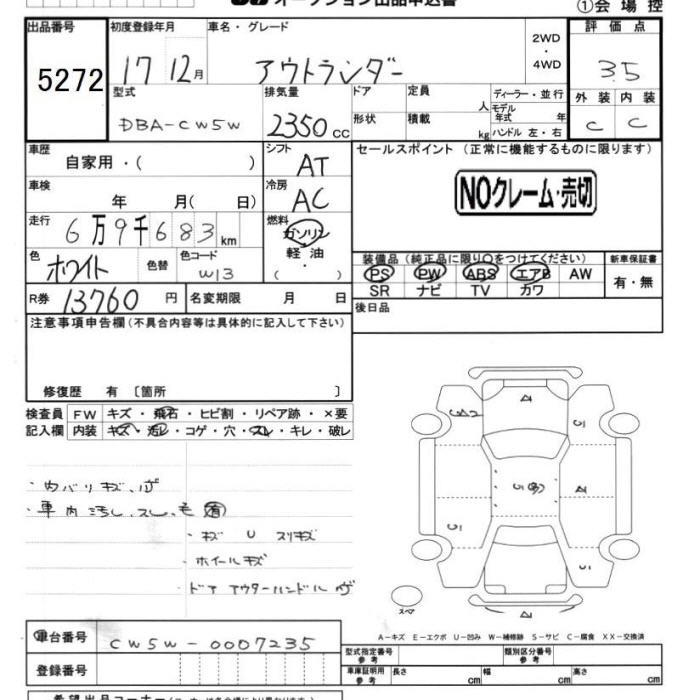 オークション出品申込書
①会場控
出品番号
5272
初度登録年月
17 12月
車名・グレード
アウトランダー
2WD
・
4WD
評価点
3.5
型式
DBA-CW5W
排気量
2350 CC
ドア
形状
定員
人
積載
kg
ディーラー・並行
モデル
年式 年
ハンドル 左・右
外装 内装
C C
車歴
自家用・( )
シフト
AT
セールスポイント (正常に機能するものに限ります)
NOクレーム・売切
車検
年 月( 日)
冷房
AC
走行
6万9千683km
燃料
ガソリン
軽油
( )
色
ホワイト
色替
色コード
W13
装備品 (純正品に限り○をつけてください)
PS PW ABS エアB AW
SR ナビ TV カワ
新車保証書
有・無
R券 13760 円
名変期限 月 日
後日品
注意事項申告欄(不具合内容等は具体的に記入して下さい)
修復歴 有 〔箇所 〕
検査員
記入欄
FW キズ・飛石・ヒビ割・リペア跡・×要
内装 キズ・汚レ・コゲ・穴・スレ・キレ・破レ
・内バリキズ、
・車内汚し、スレ、
・キズ U スリキズ
・ホイールキズ
・ドア アウターハンドル
スペア
A-キズ E-エクボ U-凹み W-補修跡 S-サビ C-腐食 XX-交換済
車台番号
CW5W-0007235
登録番号
型式指定番号
参考
類別区分番号
参考
車庫証明用
参考
長さ cm 幅 cm 高さ cm
希望出品コーナー